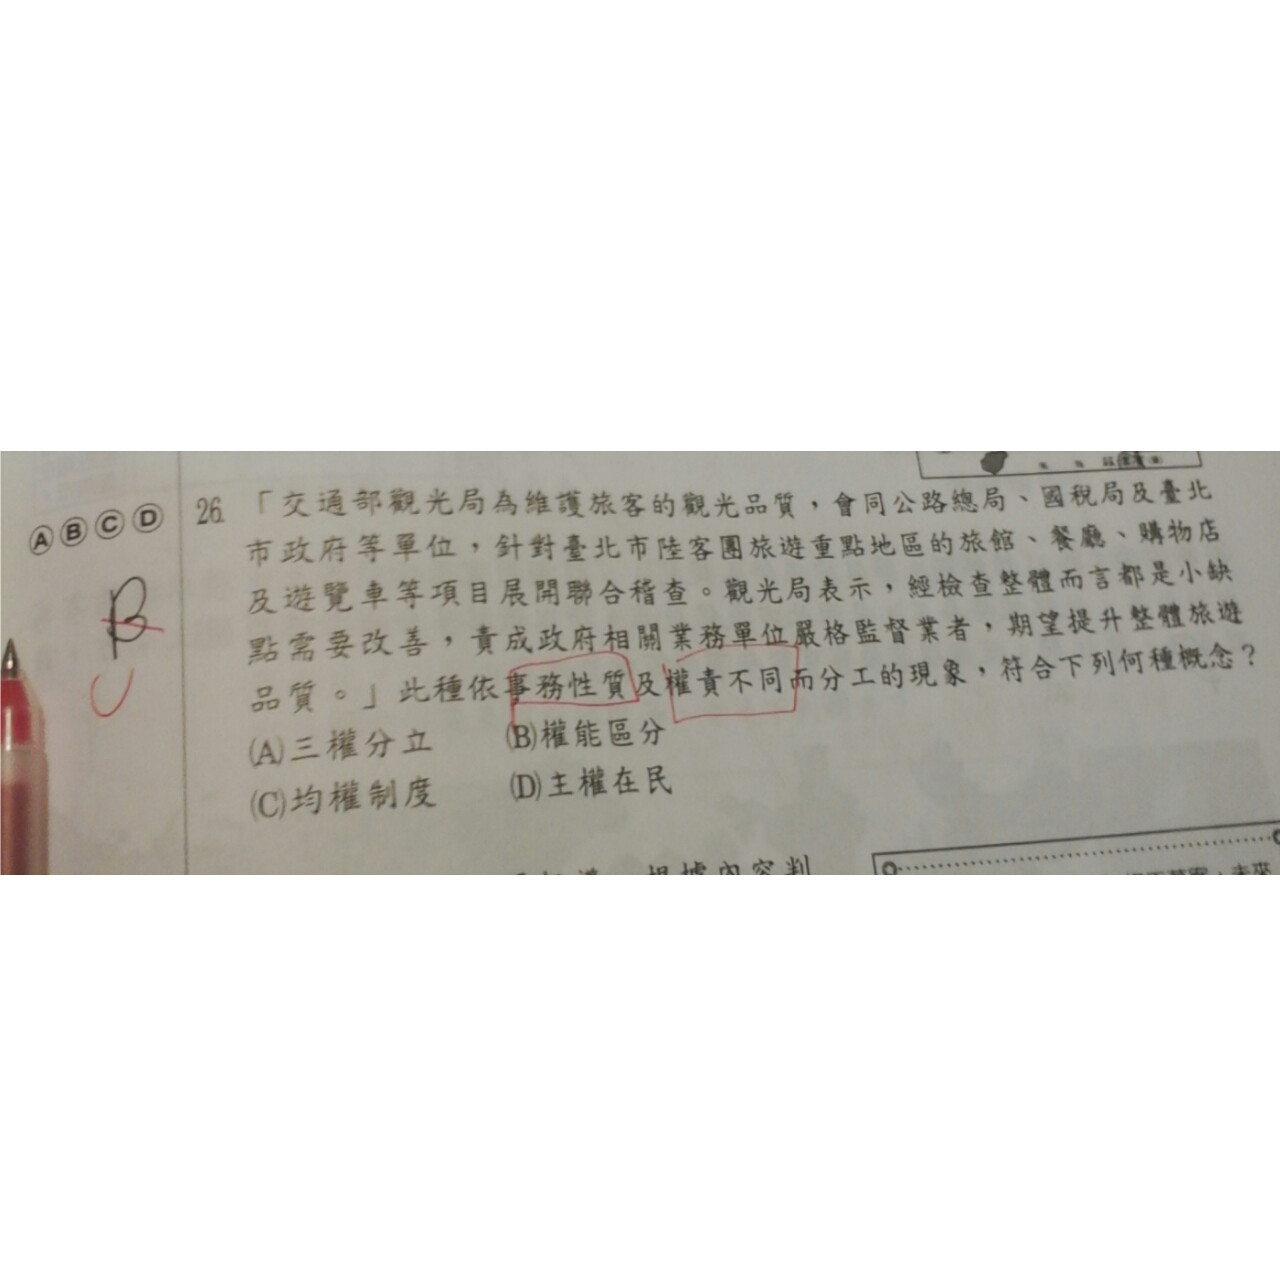 ⒶⒷⒸⒹ
B
C
26.「交通部觀光局為維護旅客的觀光品質，會同公路總局、國稅局及臺北
市政府等單位，針對臺北市陸客團旅遊重點地區的旅館、餐廳、購物店
及遊覽車等項目展開聯合稽查。觀光局表示，經檢查整體而言都是小缺
點需要改善，責成政府相關業務單位嚴格監督業者，期望提升整體旅遊
品質。」此種依事務性質及權責不同而分工的現象，符合下列何種概念？
(A)三權分立 (B)權能區分
(C)均權制度 (D)主權在民
根據內容判
未來